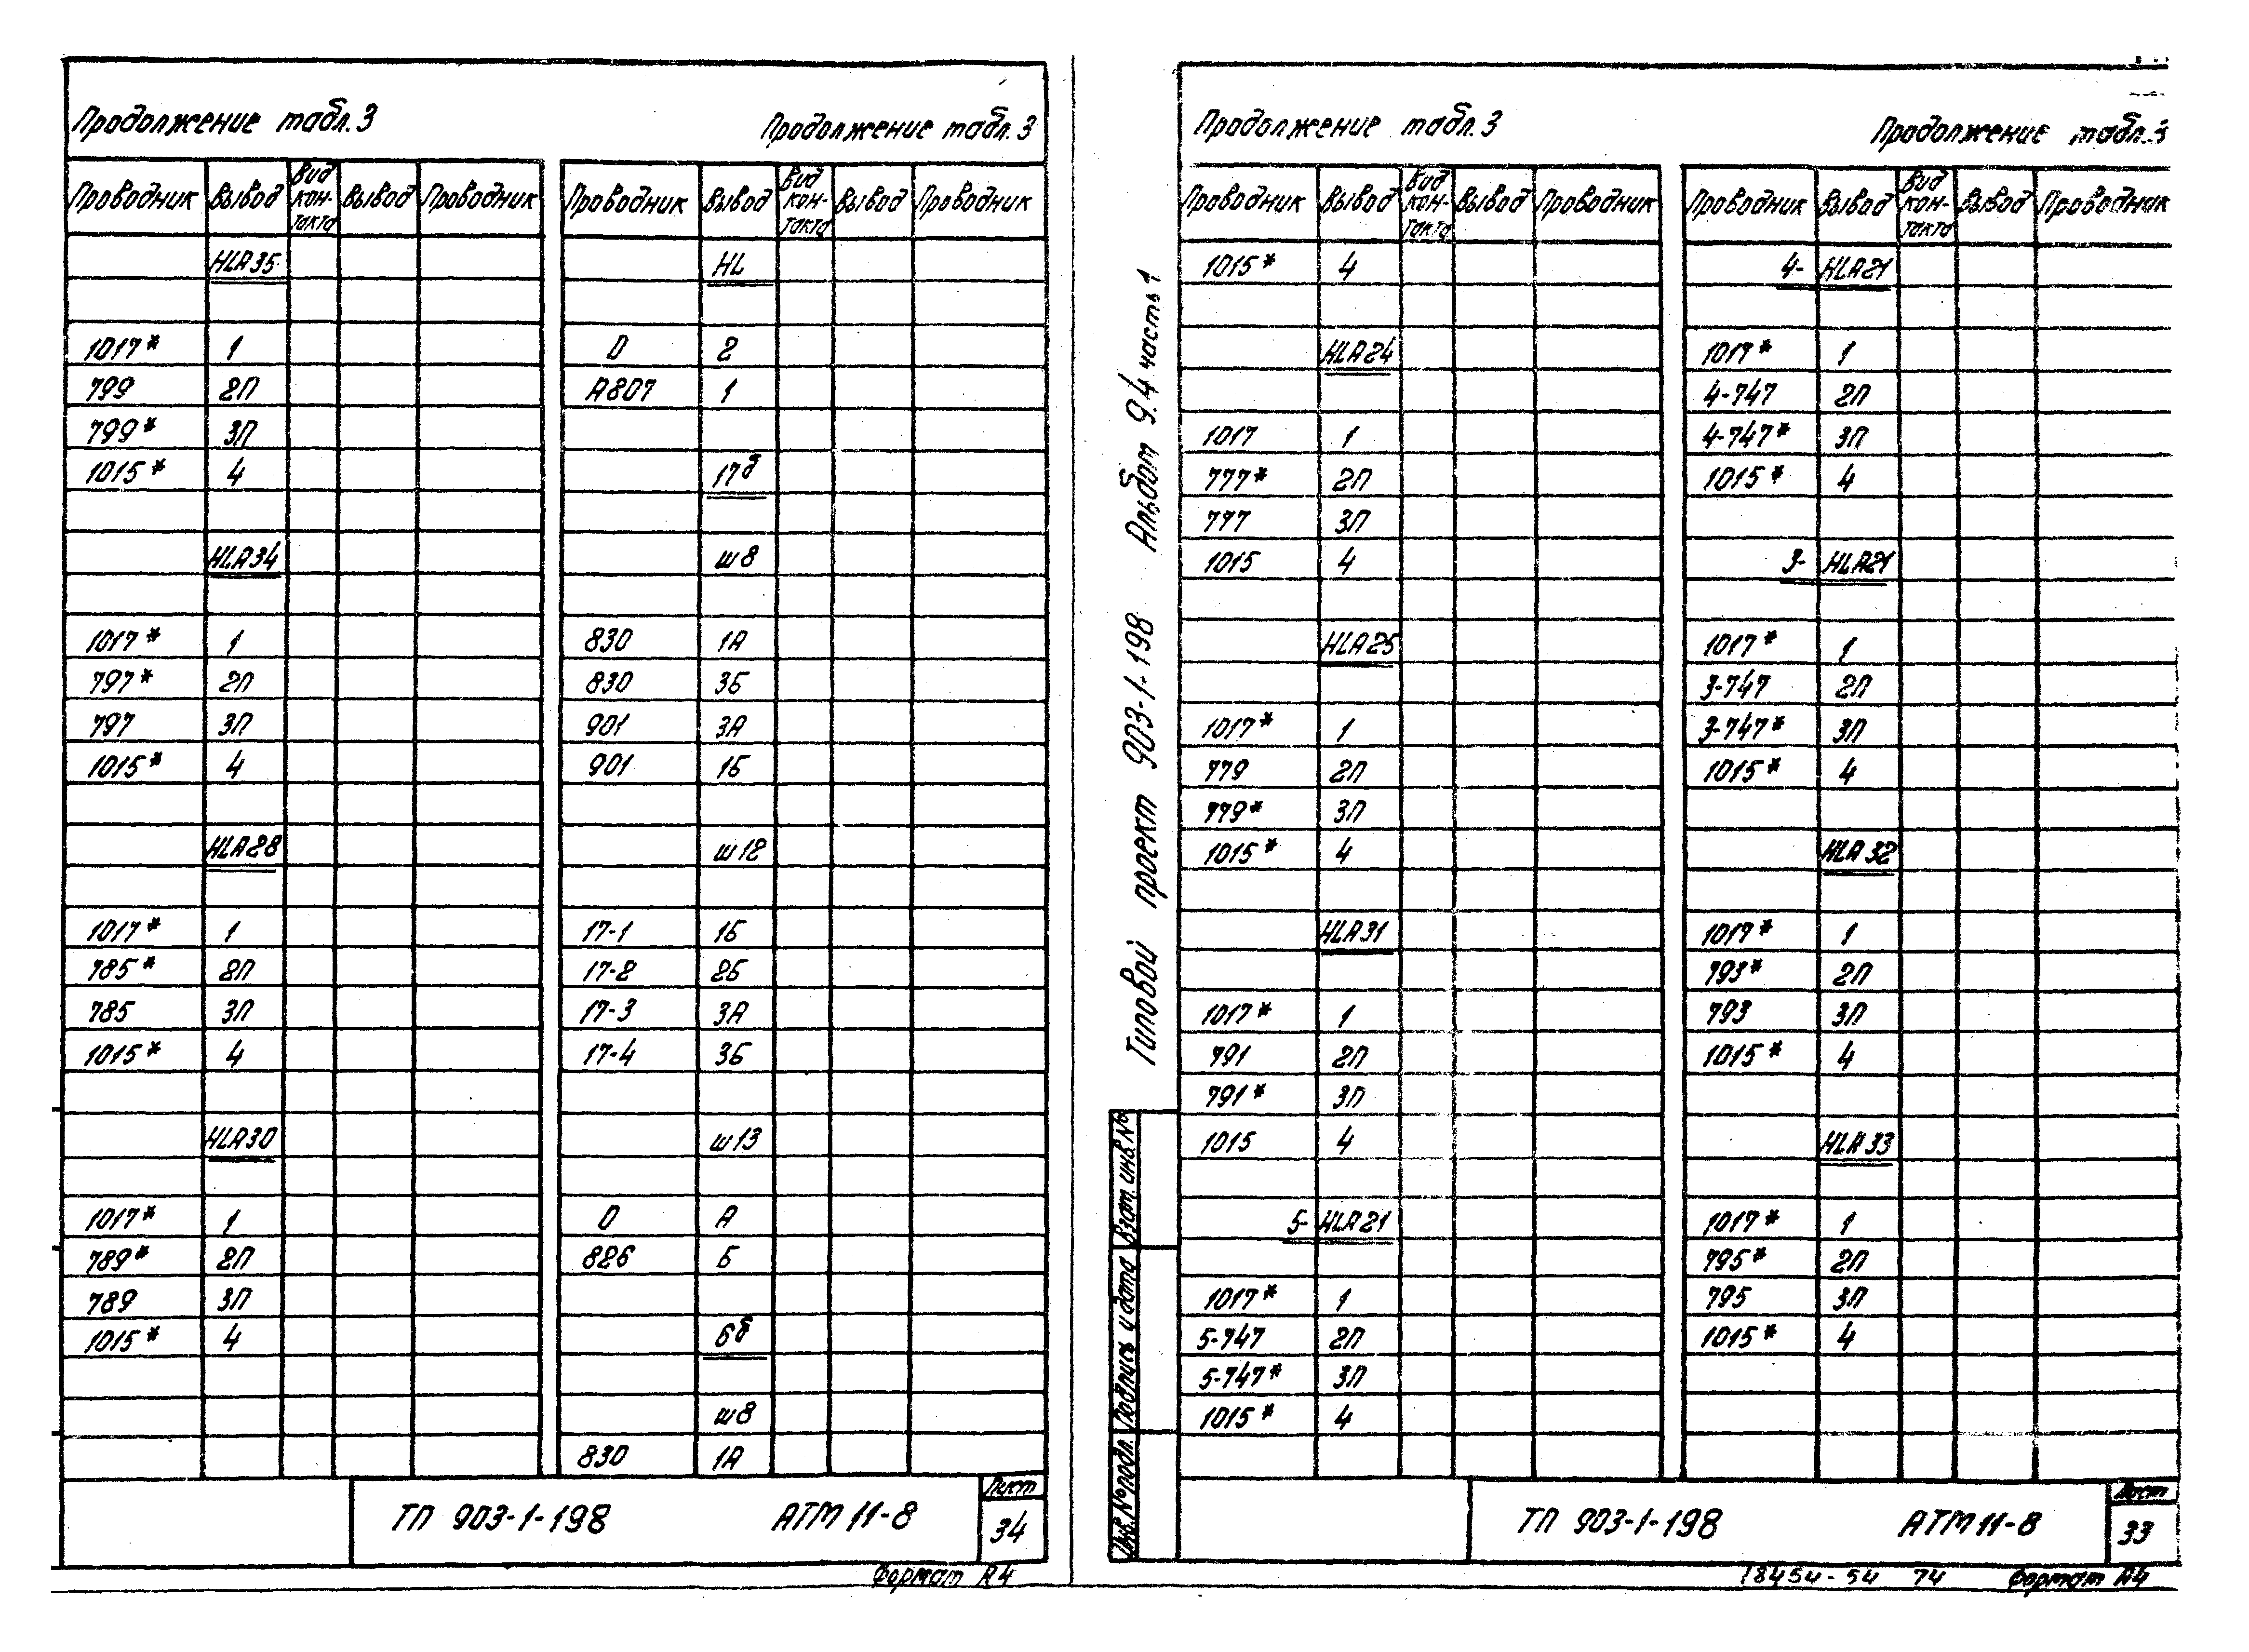 Продолжение табл.3
Проводник Вывод Вид кон-такта Вывод Проводник
HLA35
1017* 1
799 2П
799* 3П
1015* 4
HLA34
1017* 1
797* 2П
797 3П
1015* 4
HLA28
1017* 1
785* 2П
785 3П
1015* 4
HLA30
1017* 1
789* 2П
789 3П
1015* 4
Продолжение табл.3
Проводник Вывод Вид кон-такта Вывод Проводник
HL
0 2
А807 1
17б
ш8
830 1А
830 3Б
901 3А
901 1Б
ш12
17-1 1Б
17-2 2Б
17-3 3А
17-4 3Б
ш13
0 А
826 Б
6б
ш8
830 1А
ТП 903-1-198 АТМ 11-8
Лист
34
Формат А4
Типовой проект 903-1-198 Альбом 9.4 часть 1
Инв.№ подл. Подпись и дата Взам. инв.№
Продолжение табл.3
Проводник Вывод Вид кон-такта Вывод Проводник
1015* 4
HLA24
1017 1
777* 2П
777 3П
1015 4
HLA25
1017* 1
779 2П
779* 3П
1015* 4
HLA31
1017* 1
791 2П
791* 3П
1015 4
5-HLA21
1017* 1
5-747 2П
5-747* 3П
1015* 4
Продолжение табл.3
Проводник Вывод Вид кон-такта Вывод Проводник
4-HLA21
1017* 1
4-747 2П
4-747* 3П
1015* 4
3-HLA21
1017* 1
3-747 2П
3-747* 3П
1015* 4
HLA32
1017* 1
793* 2П
793 3П
1015* 4
HLA33
1017* 1
795* 2П
795 3П
1015* 4
ТП 903-1-198 АТМ 11-8
Лист
33
18454-54 74 Формат А4